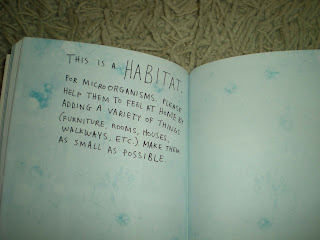 THIS IS A HABITAT.
FOR MICROORGANISMS. PLEASE
HELP THEM TO FEEL AT HOME BY
ADDING A VARIETY OF THINGS
(FURNITURE, ROOMS, HOUSES,
WALKWAYS, ETC.) MAKE THEM
AS SMALL AS POSSIBLE.